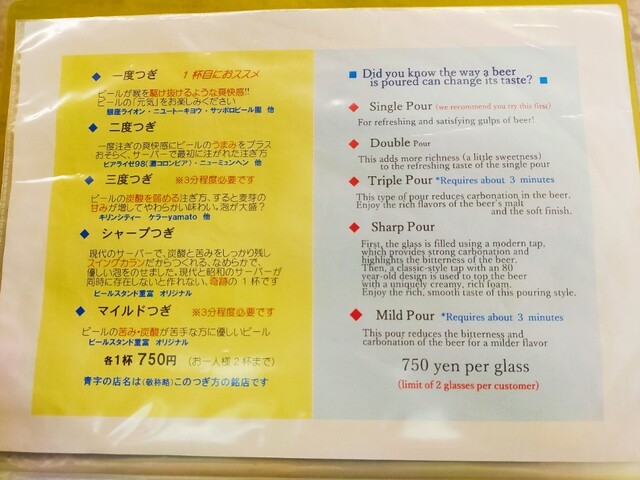 ◆ 一度つぎ 1杯目におススメ
ビールが喉を駆け抜けるような爽快感!!
ビールの「元気」をお楽しみください
銀座ライオン・ニユートーキヨウ・サッポロビール園 他
◆ 二度つぎ
一度注ぎの爽快感にビールのうまみをプラス
おそらく、サーバーで最初に注がれた注ぎ方
ビアライゼ98(灘コロンビア)・ニューミュンヘン 他
◆ 三度つぎ ※3分程度必要です
ビールの炭酸を弱める注ぎ方、すると麦芽の
甘みが増してやわらかい味わい。泡が大盛?
キリンシティー ケラーyamato 他
◆ シャープつぎ
現代のサーバーで、炭酸と苦みをしっかり残し
スイングカランだからつくれる、なめらかで、
優しい泡をのせました。現代と昭和のサーバーが
同時に存在しないと作れない、奇跡の1杯です
ビールスタンド重富 オリジナル
◆ マイルドつぎ ※3分程度必要です
ビールの苦み・炭酸が苦手な方に優しいビール
ビールスタンド重富 オリジナル
各1杯 750円 (お一人様2杯まで)
青字の店名は(敬称略)このつぎ方の銘店です
■ Did you know the way a beer
is poured can change its taste? ■
◆ Single Pour (we recommend you try this first)
For refreshing and satisfying gulps of beer!
◆ Double Pour
This adds more richness (a little sweetness)
to the refreshing taste of the single pour
◆ Triple Pour *Requires about 3 minutes
This type of pour reduces carbonation in the beer.
Enjoy the rich flavors of the beer's malt
and the soft finish.
◆ Sharp Pour
First, the glass is filled using a modern tap,
which provides strong carbonation and
highlights the bitterness of the beer.
Then, a classic-style tap with an 80
year-old design is used to top the beer
with a uniquely creamy, rich foam.
Enjoy the rich, smooth taste of this pouring style.
◆ Mild Pour *Requires about 3 minutes
This pour reduces the bitterness and
carbonation of the beer for a milder flavor
750 yen per glass
(limit of 2 glasses per customer)